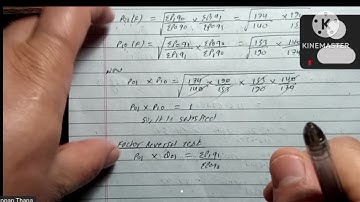 P01(F) = √ΣP1q0/ΣP0q0 × ΣP1q1/ΣP0q1 = √174/140 × 190
P10(F) = √ΣP0q1/ΣP1q1 × ΣP0q0/ΣP1q0 = √153/190 × 140/174
KINEMASTER
Now
P01 × P10 = √174/140 × 190/153 × 153/190 × 140/174
P01 × P10 = 1
so, it is satisfied
Factor Reversal Test
P01 × Q01 = ΣP1q1/ΣP0q0
Thapa